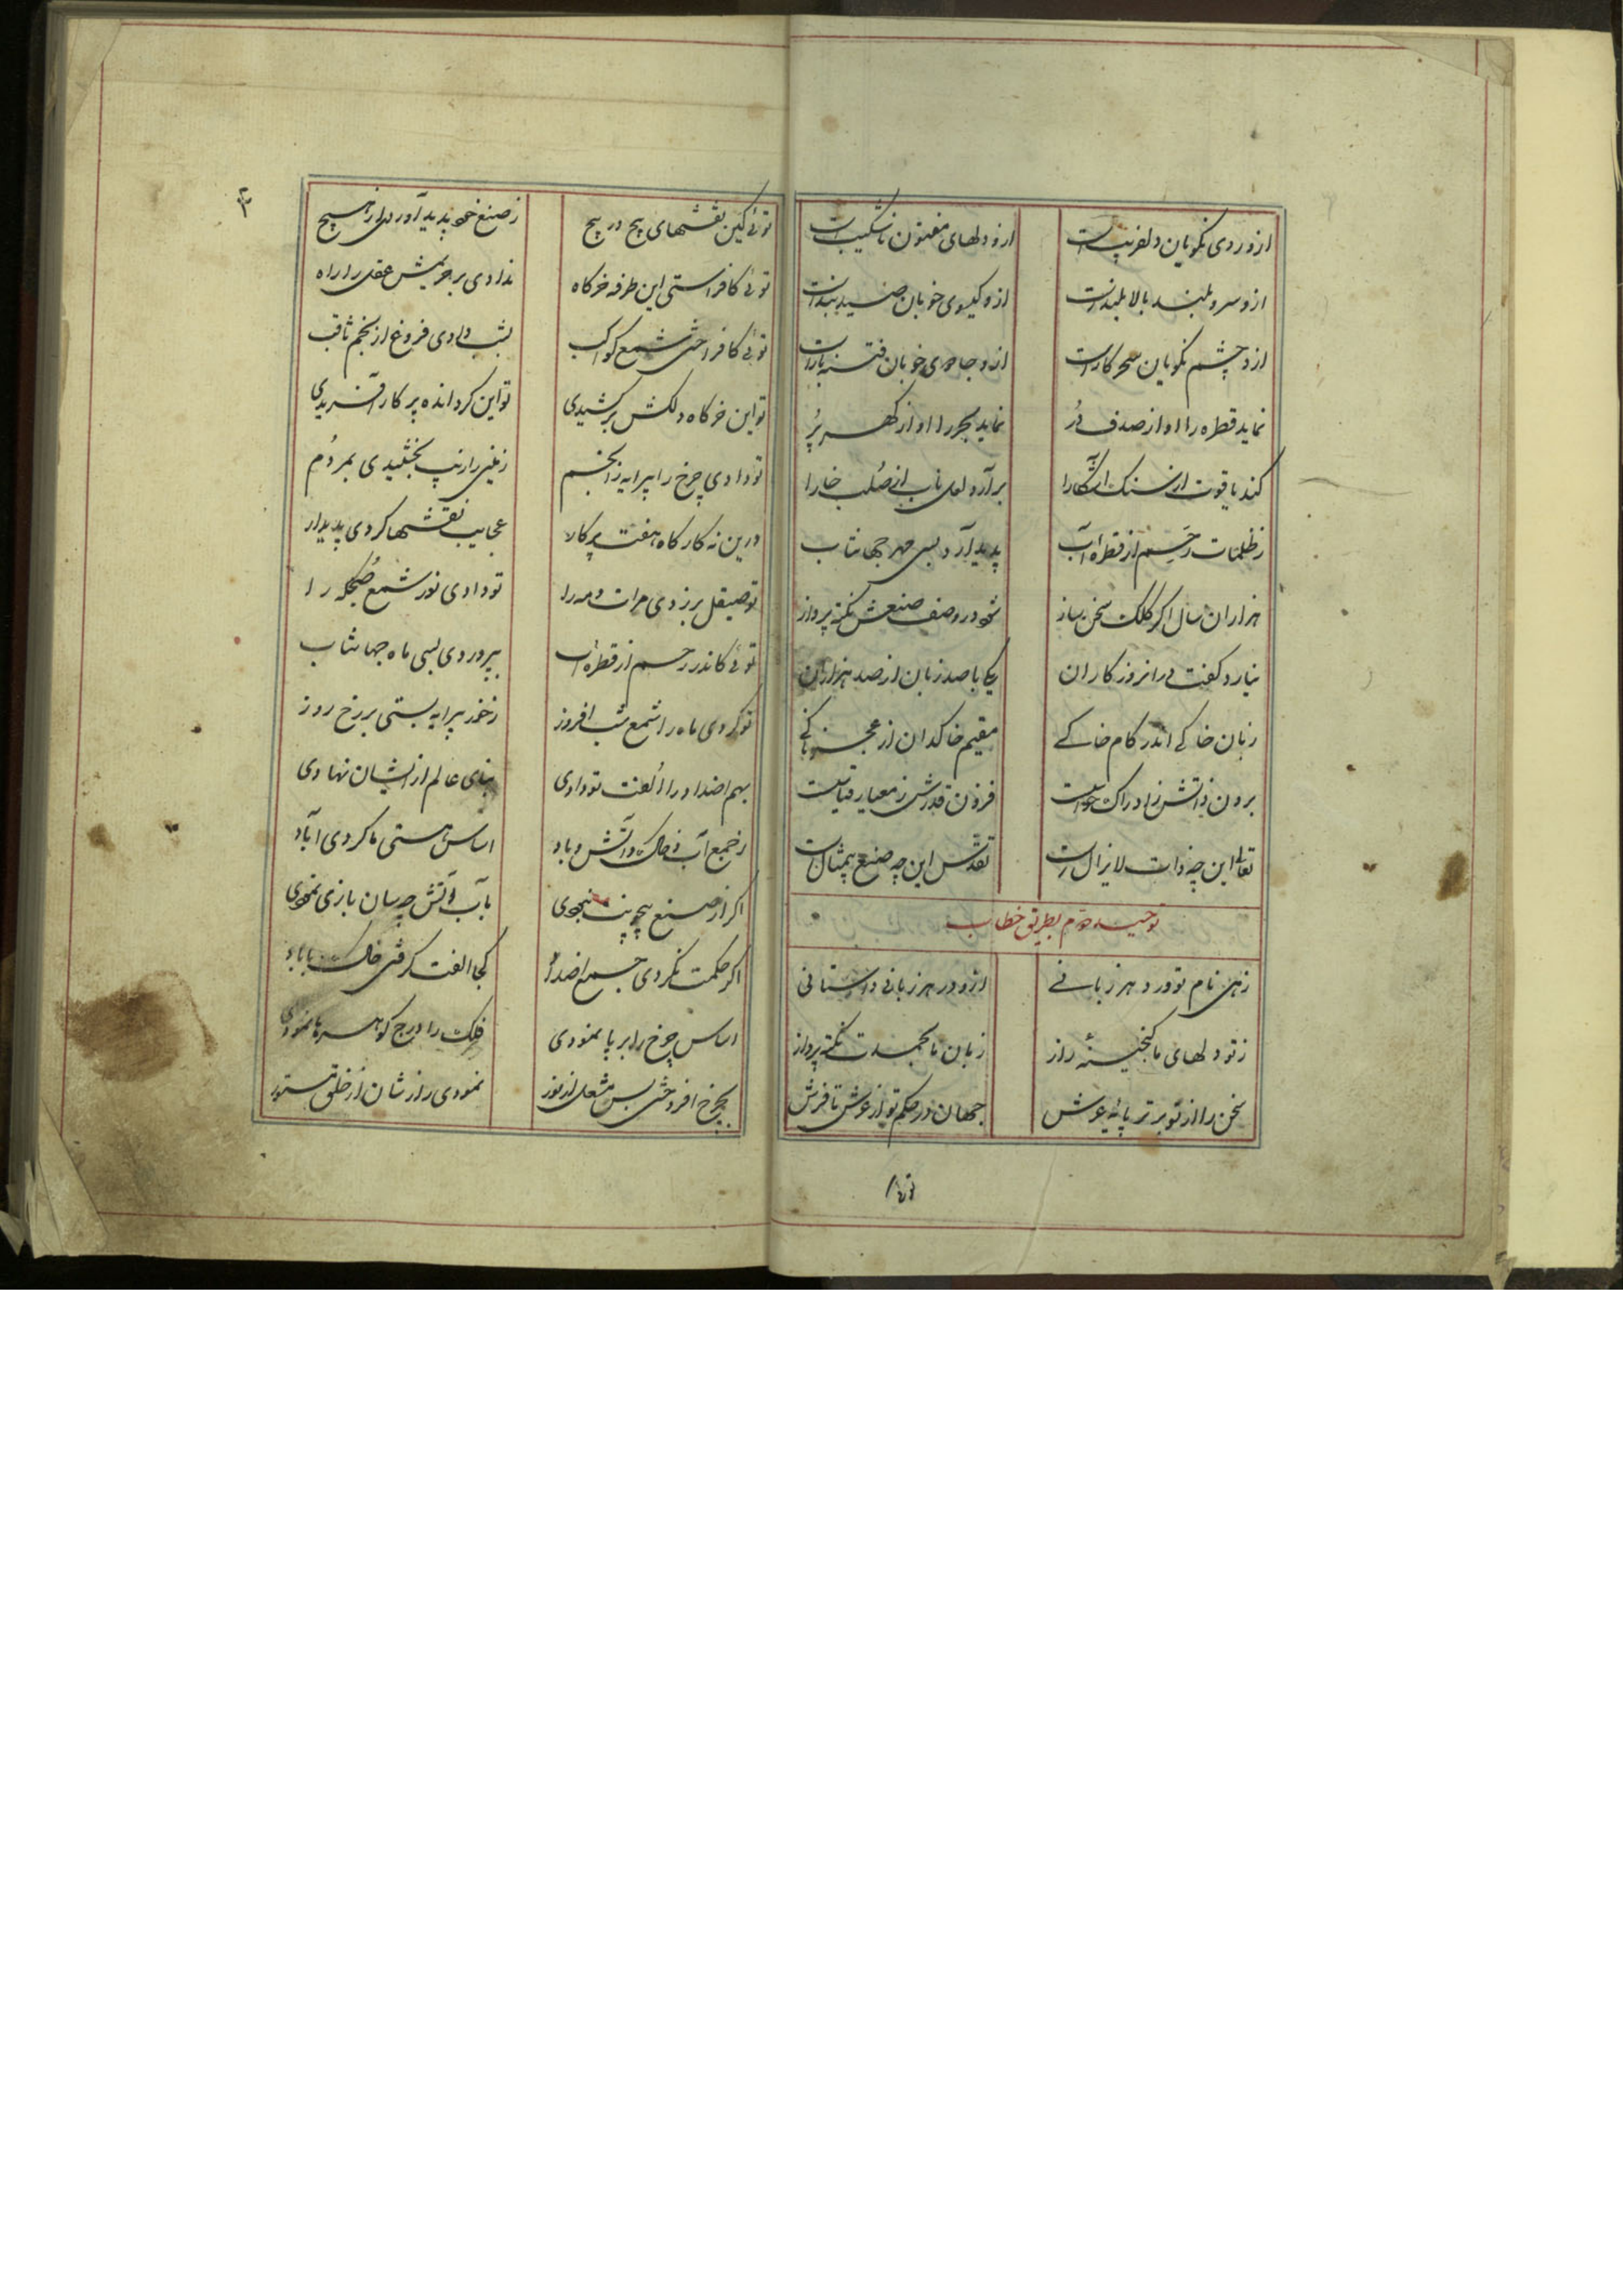 ازو روی نکویان دلفریبست ازو دلهای مفتون ناشکیبست
ازو سرو بلند بالا بلندست ازو کیسوی خوبان صید بندست
ازو چشم نکویان سحر کارست ازو جادوی خوبان فتنه بارست
نماید قطره را او از صدف دُر نماید بحر را او از کهر پُر
کند یاقوت از سنک آشکارا برآرد لعل ناب از صُلب خارا
ز ظلمات رَحِم از قطره آب پدید آرد بسی مهر جهانتاب
هزاران سال اکر کلک سخن ساز شود در وصف صنعش نکته پرداز
نیارد کفت در روزکاران یکی با صد زبان از صد هزاران
زبان خاکی اندر کام خاکی مقیم خاکدان از
برون ذاتش ز ادراک حواست فزون قدرش ز معیار قیاست
تعالی این چه ذات لایزال است تقدس این چه صنع بیمثال است
توحید دوم بطریق خطاب
زهی نام تو ورد هر زبانی ازو در هر زبانی داستانی
ز تو دلهای ما کنجینهٔ راز زبان ما بحمدت نکته پرداز
سخن را از تو برتر پایه عرش جهان در حکم تو از عرش تا فرش
توئی
۳
توئی کین نقشهای پیچ در پیچ ز صنع خود پدید آوردی از هیچ
توئی کافراستی این طرفه خرکاه ندادی بر حریمش عقل را راه
توئی کافراختی شمع کواکب بشب دادی فروغ از نجم ثاقب
تو این خرکاه دلکش برکشیدی تو این کردانده پرکار آفریدی
تو دادی چرخ را پیرایه ز انجم زمین را زیب بخشیدی بمردُم
درین نه کارکاه هفت پرکار عجایب نقشها کردی پدیدار
تو صیقل بر زدی مرات مه را تو دادی نور شمع صُبحکه را
توئی کاندر رحم از قطرهٔ آب بپروردی بسی ماه جهانتاب
تو کردی ماه را شمع شب افروز ز خور پیرایه بستی بر رخ روز
بهم اضداد را اُلفت تو دادی بنای عالم از ایشان نهادی
ز جمع آب و خاک و آتش و باد اساس هستی ما کردی آباد
اکر از صنع بیچونت نبودی بآب و آتش چه سان بازی نمودی
اکر حکمت نکردی جمع اضداد کجا الفت کرفتی خاک با باد
اساس چرخ را بر پا نمودی فلک را درج کوهرها نمودی
بچرخ افروختی بس مشعل از نور نمودی راز شان از خلق مستور